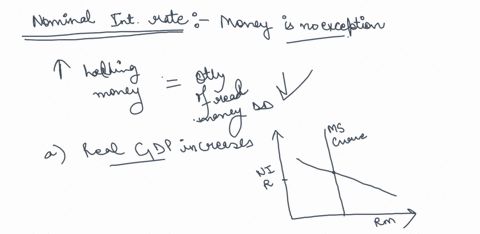 Nominal Int. rate :- Money is no exception
↑ holding money = Qty of read money DD
a) Real GDP increases
MS Curve
NI R
RM